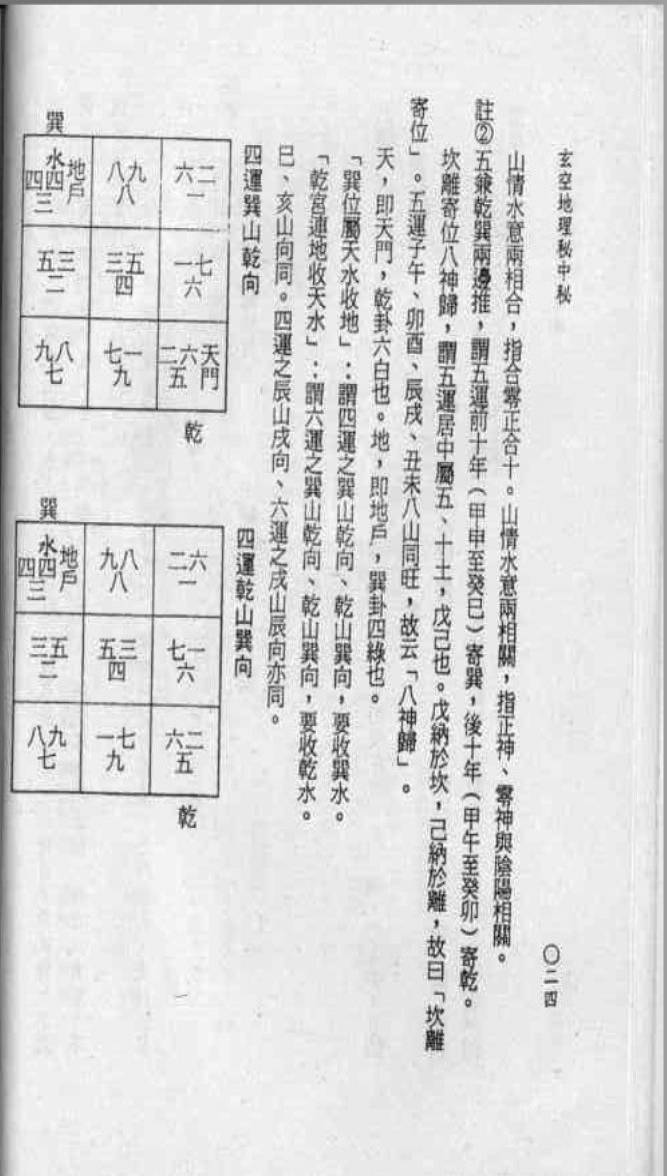 玄空地理秘中秘
〇二四
山情水意兩相合，指合零正合十。山情水意兩相關，指正神、零神與陰陽相關。
註②五兼乾巽兩邊推，謂五運前十年（甲申至癸巳）寄巽，後十年（甲午至癸卯）寄乾。
坎離寄位八神歸，謂五運居中屬五、十土，戊己也。戊納於坎，己納於離，故曰「坎離
寄位」。五運子午、卯酉、辰戌、丑未八山同旺，故云「八神歸」。
天，即天門，乾卦六白也。地，即地戶，巽卦四綠也。
「巽位屬天水收地」：謂四運之巽山乾向、乾山巽向，要收巽水。
「乾宮運地收天水」：謂六運之巽山乾向、乾山巽向，要收乾水。
巳、亥山向同。四運之辰山戌向、六運之戌山辰向亦同。
四運巽山乾向
巽
水 地戶
四四 八九 六二
三 八 一
五三 三五 一七
二 四 六
九八 七一 二六 天門
七 九 五
乾
四運乾山巽向
巽
水 地戶
四四 九八 二六
三 八 一
三五 五三 七一
二 四 六
八九 一七 六二
七 九 五
乾